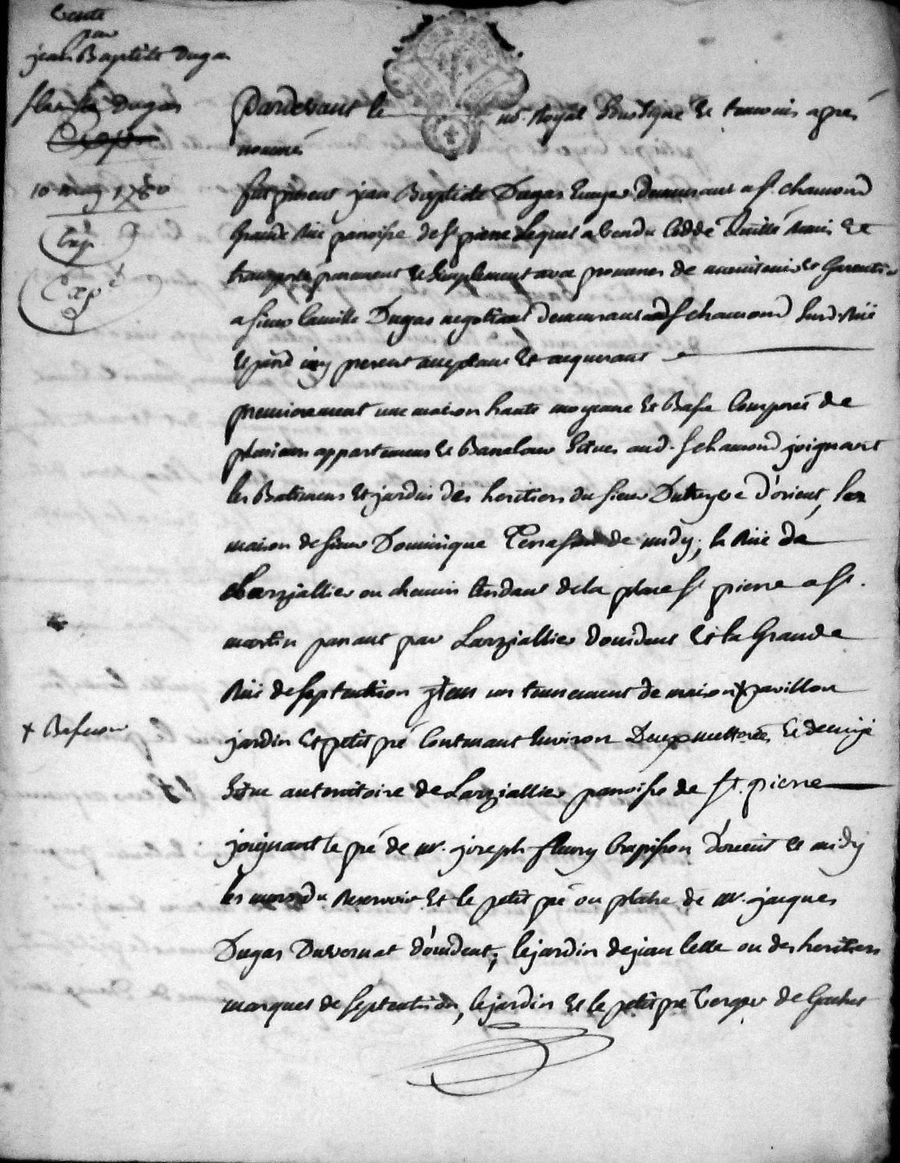 Vente
par
jean Baptiste Dugas
Dugas
10 may 1780
Exp
Expé
pardevant le no. Royal Soussigné et temoins apres
nommés
fut present jean Baptiste Dugas demeurant a st. chamond
Grande Ruë paroisse de st pierre Lequel a vendu Ceddé Quitté Remis Et
transporté purement et simplement avec promesses de maintenir et Garentir
a sieur Camille Dugas negotiant demeurant aud st chamond Susd. Ruë
Et p. icy present acceptant Et acquerant
premierement une maison haute moyenne Et Basse Composée de
plusieurs appartemens et Situés aud. st chamond joignant
les Batimens Et jardin des heritiers du sieur D'orient, la
maison de sieur Dominique Terrasson de midy, la Ruë de
Larziallier ou chemin tendant de la place st. pierre a st.
martin passant par Larziallier d'occident Et la Grande
Ruë de septentrion jtem un tennement de maison x pavillon
x
jardin Et petit pré Contenant Environ Deux metterées Et demije
Situé au territoire de Larziallier paroisse de st. pierre
joignant le pré de mr. joseph fleury Chapisson d'orient et midy
les murs du Reservoir Et le petit pré ou platre de mr. jacques
Dugas Duvernat d'occident, le jardin de jean Celle ou des heritiers
marquet de septentrion, le jardin Et le petit pré verger de